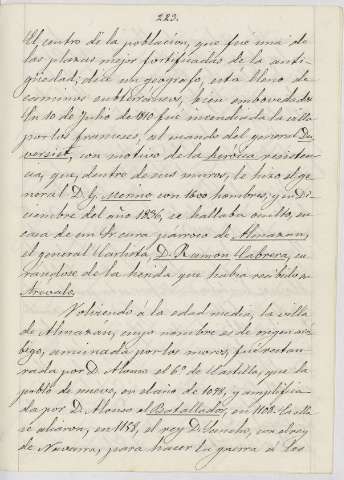 223.
El centro de la poblacion, que fué una de
las plazas mejor fortificadas de la anti-
güedad; dice un geografo, está lleno de
caminos subterráneos, bien embovedados.
En 10 de Julio de 1810 fué incendiada la villa
por los franceses, al mando del general Du-
versiet, con motivo de la heróica resisten-
cia, que, dentro de sus muros, le hizo el ge-
neral D. G. Merino con 1600 hombres; y en Di-
ciembre del año 1836, se hallaba oculto, en
casa de un Sr. cura párroco de Almazan,
el general Carlista, D. Ramon Cabrera, cu-
randose de la herida que habia recibido en
Arevalo.
Volviendo á la edad media, la villa
de Almazan, cuyo nombre es de origen ará-
bigo, arruinada por los moros, fué restau-
rada por D. Alonso el 6º de Castilla, que la
pobló de nuevo, en el año de 1098, y amplifica-
da por D. Alonso el Batallador, en 1108. En ella
se aliaron, en 1158, el rey D. Sancho, con el rey
de Navarra, para hacer la guerra á los